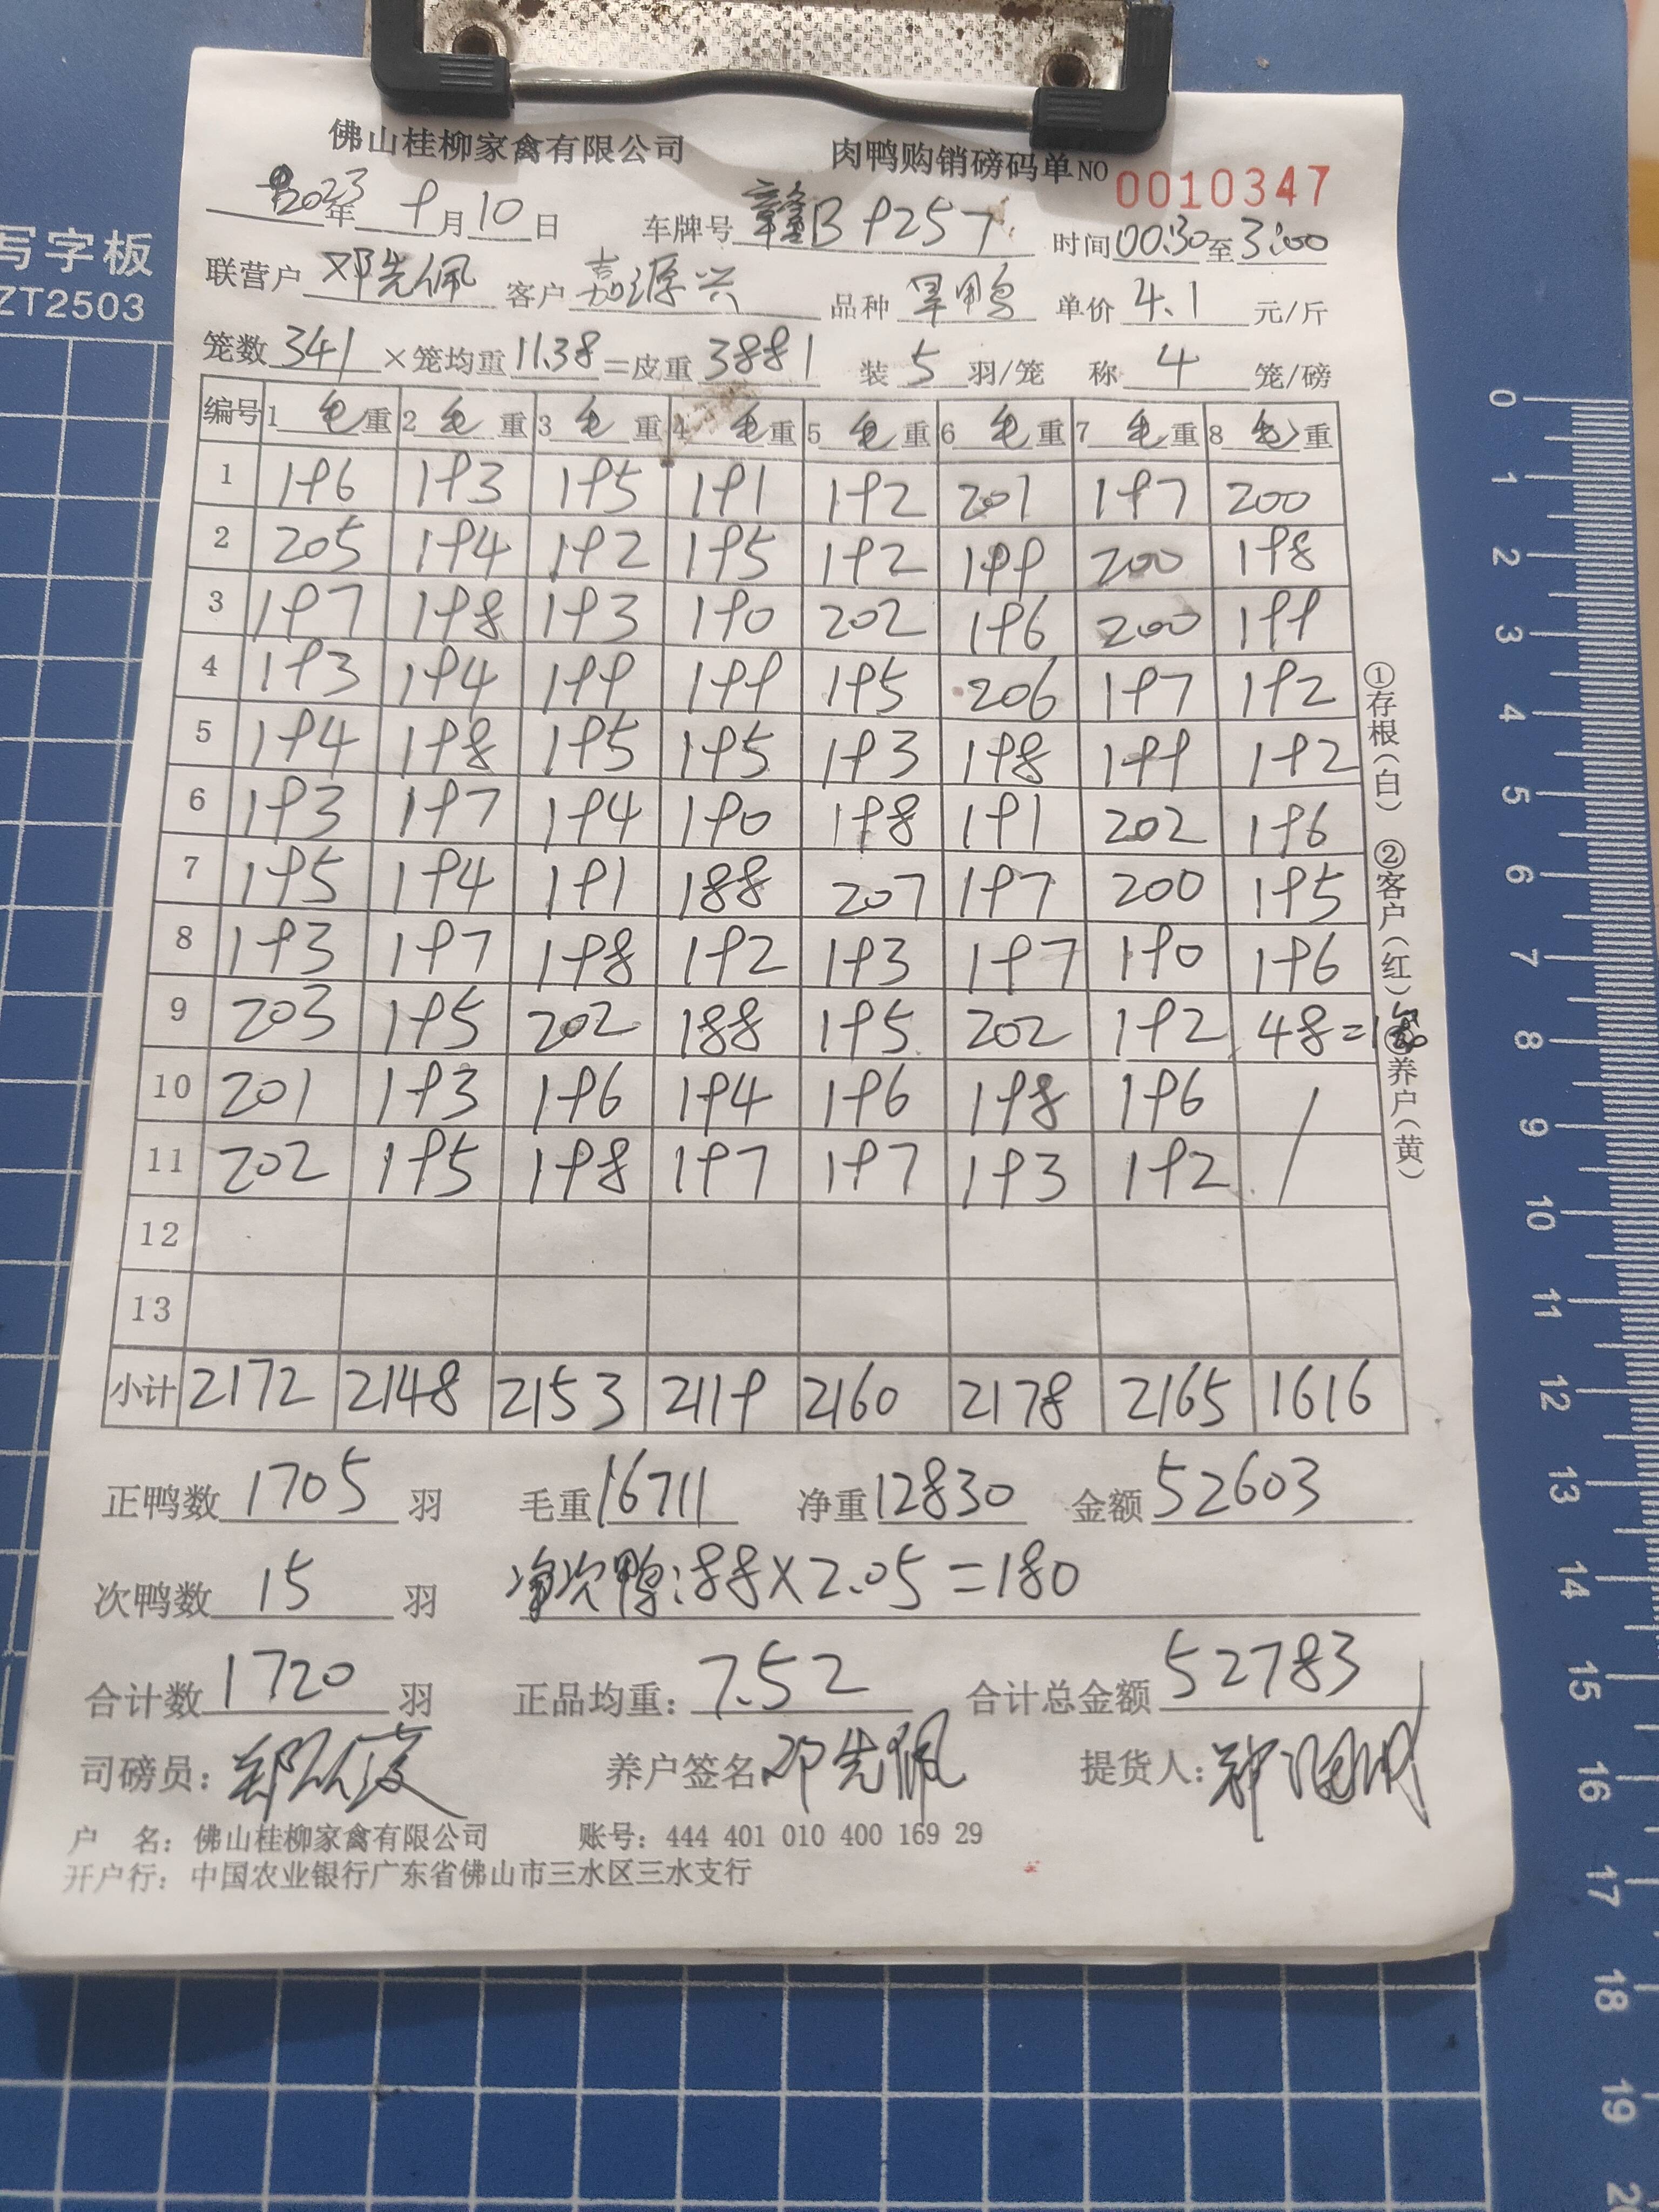 佛山桂柳家禽有限公司 肉鸭购销磅码单 NO 0010347
2023年 9月10日 车牌号 赣B9257 时间 00:30至3:00
联营户 邓先佩 客户 嘉源兴 品种 旱鸭 单价 4.1 元/斤
笼数 341 ×笼均重 11.38 =皮重 3881 装 5 羽/笼 称 4 笼/磅
编号 1 毛重 2 毛重 3 毛重 4 毛重 5 毛重 6 毛重 7 毛重 8 毛重
1 196 193 195 191 192 201 197 200
2 205 194 192 195 192 199 200 198
3 197 198 193 190 202 196 200 199
4 193 194 199 199 195 206 197 192
5 194 198 195 195 193 198 199 192
6 193 197 194 190 198 191 202 196
7 195 194 191 188 207 197 200 195
8 193 197 198 192 193 197 190 196
9 203 195 202 188 195 202 192 48=1
10 201 193 196 194 196 198 196 /
11 202 195 198 197 197 193 192 /
12
13
小计 2172 2148 2153 2119 2160 2178 2165 1616
①存根(白) ②客户(红) 养户(黄)
正鸭数 1705 羽 毛重 16711 净重 12830 金额 52603
次鸭数 15 羽 净次鸭:88×2.05=180
合计数 1720 羽 正品均重: 7.52 合计总金额 52783
司磅员: 养户签名 邓先佩 提货人:
户 名: 佛山桂柳家禽有限公司 账号: 444 401 010 400 169 29
开户行: 中国农业银行广东省佛山市三水区三水支行
写字板
ZT2503
0
1
2
3
4
5
6
7
8
9
10
11
12
13
14
15
16
17
18
19